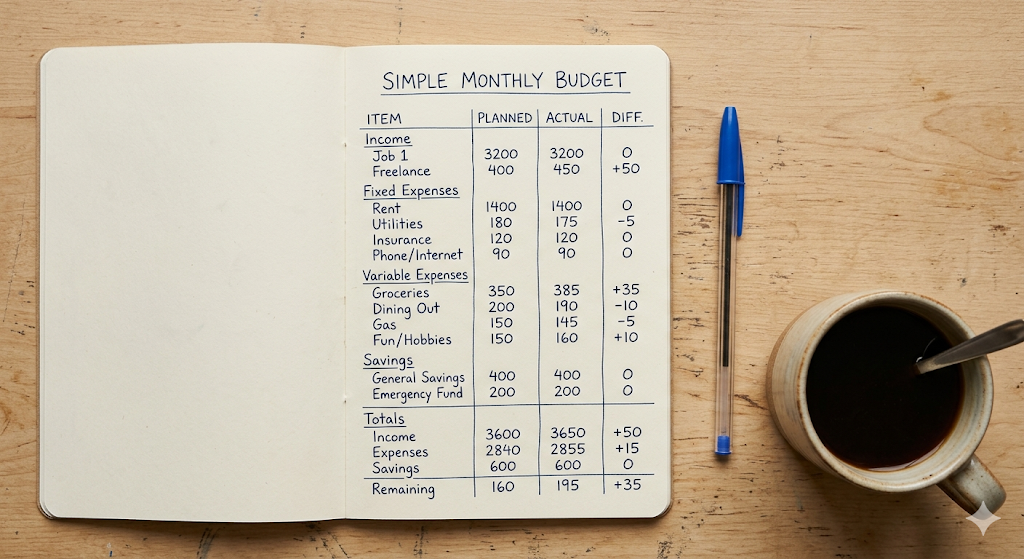 SIMPLE MONTHLY BUDGET
ITEM PLANNED ACTUAL DIFF.
Income
Job 1 3200 3200 0
Freelance 400 450 +50
Fixed Expenses
Rent 1400 1400 0
Utilities 180 175 -5
Insurance 120 120 0
Phone/Internet 90 90 0
Variable Expenses
Groceries 350 385 +35
Dining Out 200 190 -10
Gas 150 145 -5
Fun/Hobbies 150 160 +10
Savings
General Savings 400 400 0
Emergency Fund 200 200 0
Totals
Income 3600 3650 +50
Expenses 2840 2855 +15
Savings 600 600 0
Remaining 160 195 +35